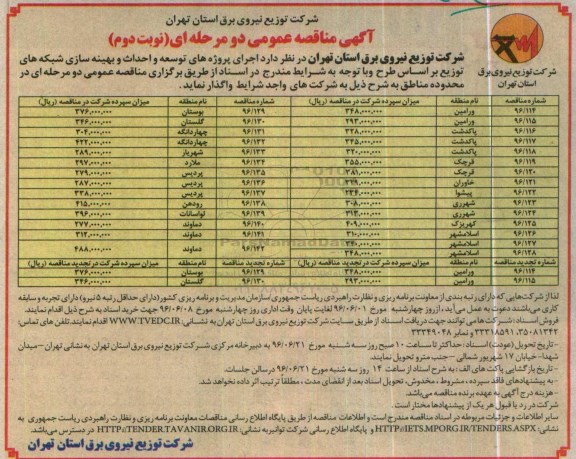 شرکت توزیع نیروی برق استان تهران
آگهی مناقصه عمومی دو مرحله ای (نوبت دوم)
شرکت توزیع نیروی برق
استان تهران
شرکت توزیع نیروی برق استان تهران در نظر دارد اجرای پروژه های توسعه و احداث و بهینه سازی شبکه های
توزیع بر اساس طرح وبا توجه به شرایط مندرج در اسناد از طریق برگزاری مناقصه عمومی دو مرحله ای در
محدوده مناطق به شرح ذیل به شرکت های واجد شرایط واگذار نماید.
شماره مناقصه نام منطقه میزان سپرده شرکت در مناقصه (ریال) شماره مناقصه نام منطقه میزان سپرده شرکت در مناقصه (ریال)
۹۶/۱۱۴ ورامین ۳۴۸,۰۰۰,۰۰۰ ۹۶/۱۲۹ بوستان ۳۷۶,۰۰۰,۰۰۰
۹۶/۱۱۵ ورامین ۲۹۳,۰۰۰,۰۰۰ ۹۶/۱۳۰ گلستان ۳۴۶,۰۰۰,۰۰۰
۹۶/۱۱۶ پاکدشت ۳۲۸,۰۰۰,۰۰۰ ۹۶/۱۳۱ چهاردانگه ۳۰۴,۰۰۰,۰۰۰
۹۶/۱۱۷ پاکدشت ۳۴۵,۰۰۰,۰۰۰ ۹۶/۱۳۲ چهاردانگه ۴۲۲,۰۰۰,۰۰۰
۹۶/۱۱۸ پاکدشت ۳۲۰,۰۰۰,۰۰۰ ۹۶/۱۳۳ شهریار ۲۸۹,۰۰۰,۰۰۰
۹۶/۱۱۹ قرچک ۳۵۵,۰۰۰,۰۰۰ ۹۶/۱۳۴ ملارد ۲۹۷,۰۰۰,۰۰۰
۹۶/۱۲۰ قرچک ۲۸۱,۰۰۰,۰۰۰ ۹۶/۱۳۵ پردیس ۲۷۹,۰۰۰,۰۰۰
۹۶/۱۲۱ خاوران ۹۶/۱۳۶ پردیس ۲۸۷,۰۰۰,۰۰۰
۹۶/۱۲۲ پیشوا ۹۶/۱۳۷ پردیس ۳۳۸,۰۰۰,۰۰۰
۹۶/۱۲۳ شهرری ۳۰۸,۰۰۰,۰۰۰ ۹۶/۱۳۸ رودهن ۴۱۵,۰۰۰,۰۰۰
۹۶/۱۲۴ شهرری ۳۱۳,۰۰۰,۰۰۰ ۹۶/۱۳۹ لواسانات ۳۹۶,۰۰۰,۰۰۰
۹۶/۱۲۵ کهریزک ۴۰۹,۰۰۰,۰۰۰ ۹۶/۱۴۰ دماوند ۲۷۷,۰۰۰,۰۰۰
۹۶/۱۲۶ اسلامشهر ۳۱۰,۰۰۰,۰۰۰ ۹۶/۱۴۱ دماوند ۳۱۲,۰۰۰,۰۰۰
۹۶/۱۲۷ اسلامشهر
۹۶/۱۲۸ اسلامشهر ۳۴۸,۰۰۰,۰۰۰ ۹۶/۱۴۲ دماوند ۴۸۸,۰۰۰,۰۰۰
شماره تجدید مناقصه نام منطقه میزان سپرده شرکت در تجدید مناقصه (ریال) شماره تجدید مناقصه نام منطقه میزان سپرده شرکت در تجدید مناقصه (ریال)
۹۶/۱۱۴ ورامین ۳۴۸,۰۰۰,۰۰۰ ۹۶/۱۲۹ بوستان ۳۷۶,۰۰۰,۰۰۰
۹۶/۱۱۵ ورامین ۲۹۳,۰۰۰,۰۰۰ ۹۶/۱۳۰ گلستان ۳۴۶,۰۰۰,۰۰۰
لذا از شرکت‌هایی که دارای رتبه بندی از معاونت برنامه ریزی و نظارت راهبردی ریاست جمهوری سازمان مدیریت و برنامه ریزی کشور (دارای حداقل رتبه ۵ نیرو) دارای تجربه و سابقه
کاری می‌باشند دعوت به عمل می‌آید، از روز چهارشنبه مورخ ۹۶/۰۶/۰۱ لغایت پایان وقت اداری روز چهارشنبه مورخ ۹۶/۰۶/۰۸ جهت خرید اسناد به شرح ذیل اقدام نمایند.
فروش اسناد: شرکت ها می توانند جهت دریافت اسناد از طریق سایت شرکت توزیع نیروی برق استان تهران به نشانی: WWW.TVEDC.IR اقدام نمایند. تلفن های تماس:
۳۵۰۸۱۳۴۲، ۳۳۳۱۸۵۹۱ و نمابر ۳۳۳۴۹۰۴۸
- تاریخ تحویل (عودت) اسناد: حداکثر تا ساعت ۱۰ صبح روز سه شنبه مورخ ۹۶/۰۶/۲۱ به دبیرخانه مرکزی شرکت توزیع نیروی برق استان تهران به نشانی تهران - میدان
شهدا- خیابان ۱۷ شهریور شمالی - جنب مترو تحویل نمایند.
- تاریخ بازگشایی پاکت های الف: به شرح اسناد از ساعت ۱۴ روز سه شنبه مورخ ۹۶/۰۶/۲۱ در سالن جلسات.
- به پیشنهادهای فاقد سپرده، مشروط، مخدوش، تحویل اسناد بعد از انقضای مدت، مطلقا ترتیب اثر داده نخواهد شد.
- هزینه درج آگهی به عهده برنده مناقصه می‌باشد.
شرکت در رد یا قبول هر یک از پیشنهادها مختار است.
سایر اطلاعات و جزئیات مربوطه در اسناد مناقصه مندرج است و اطلاعات مناقصه از طریق پایگاه اطلاع رسانی مناقصات معاونت برنامه ریزی و نظارت راهبردی ریاست جمهوری به
نشانی: HTTP://IETS.MPORG.IR/TENDERS.ASPX و پایگاه اطلاع رسانی شرکت توانیر به نشانی: HTTP://TENDER.TAVANIR.ORG.IR در دسترس می‌باشد.
شرکت توزیع نیروی برق استان تهران